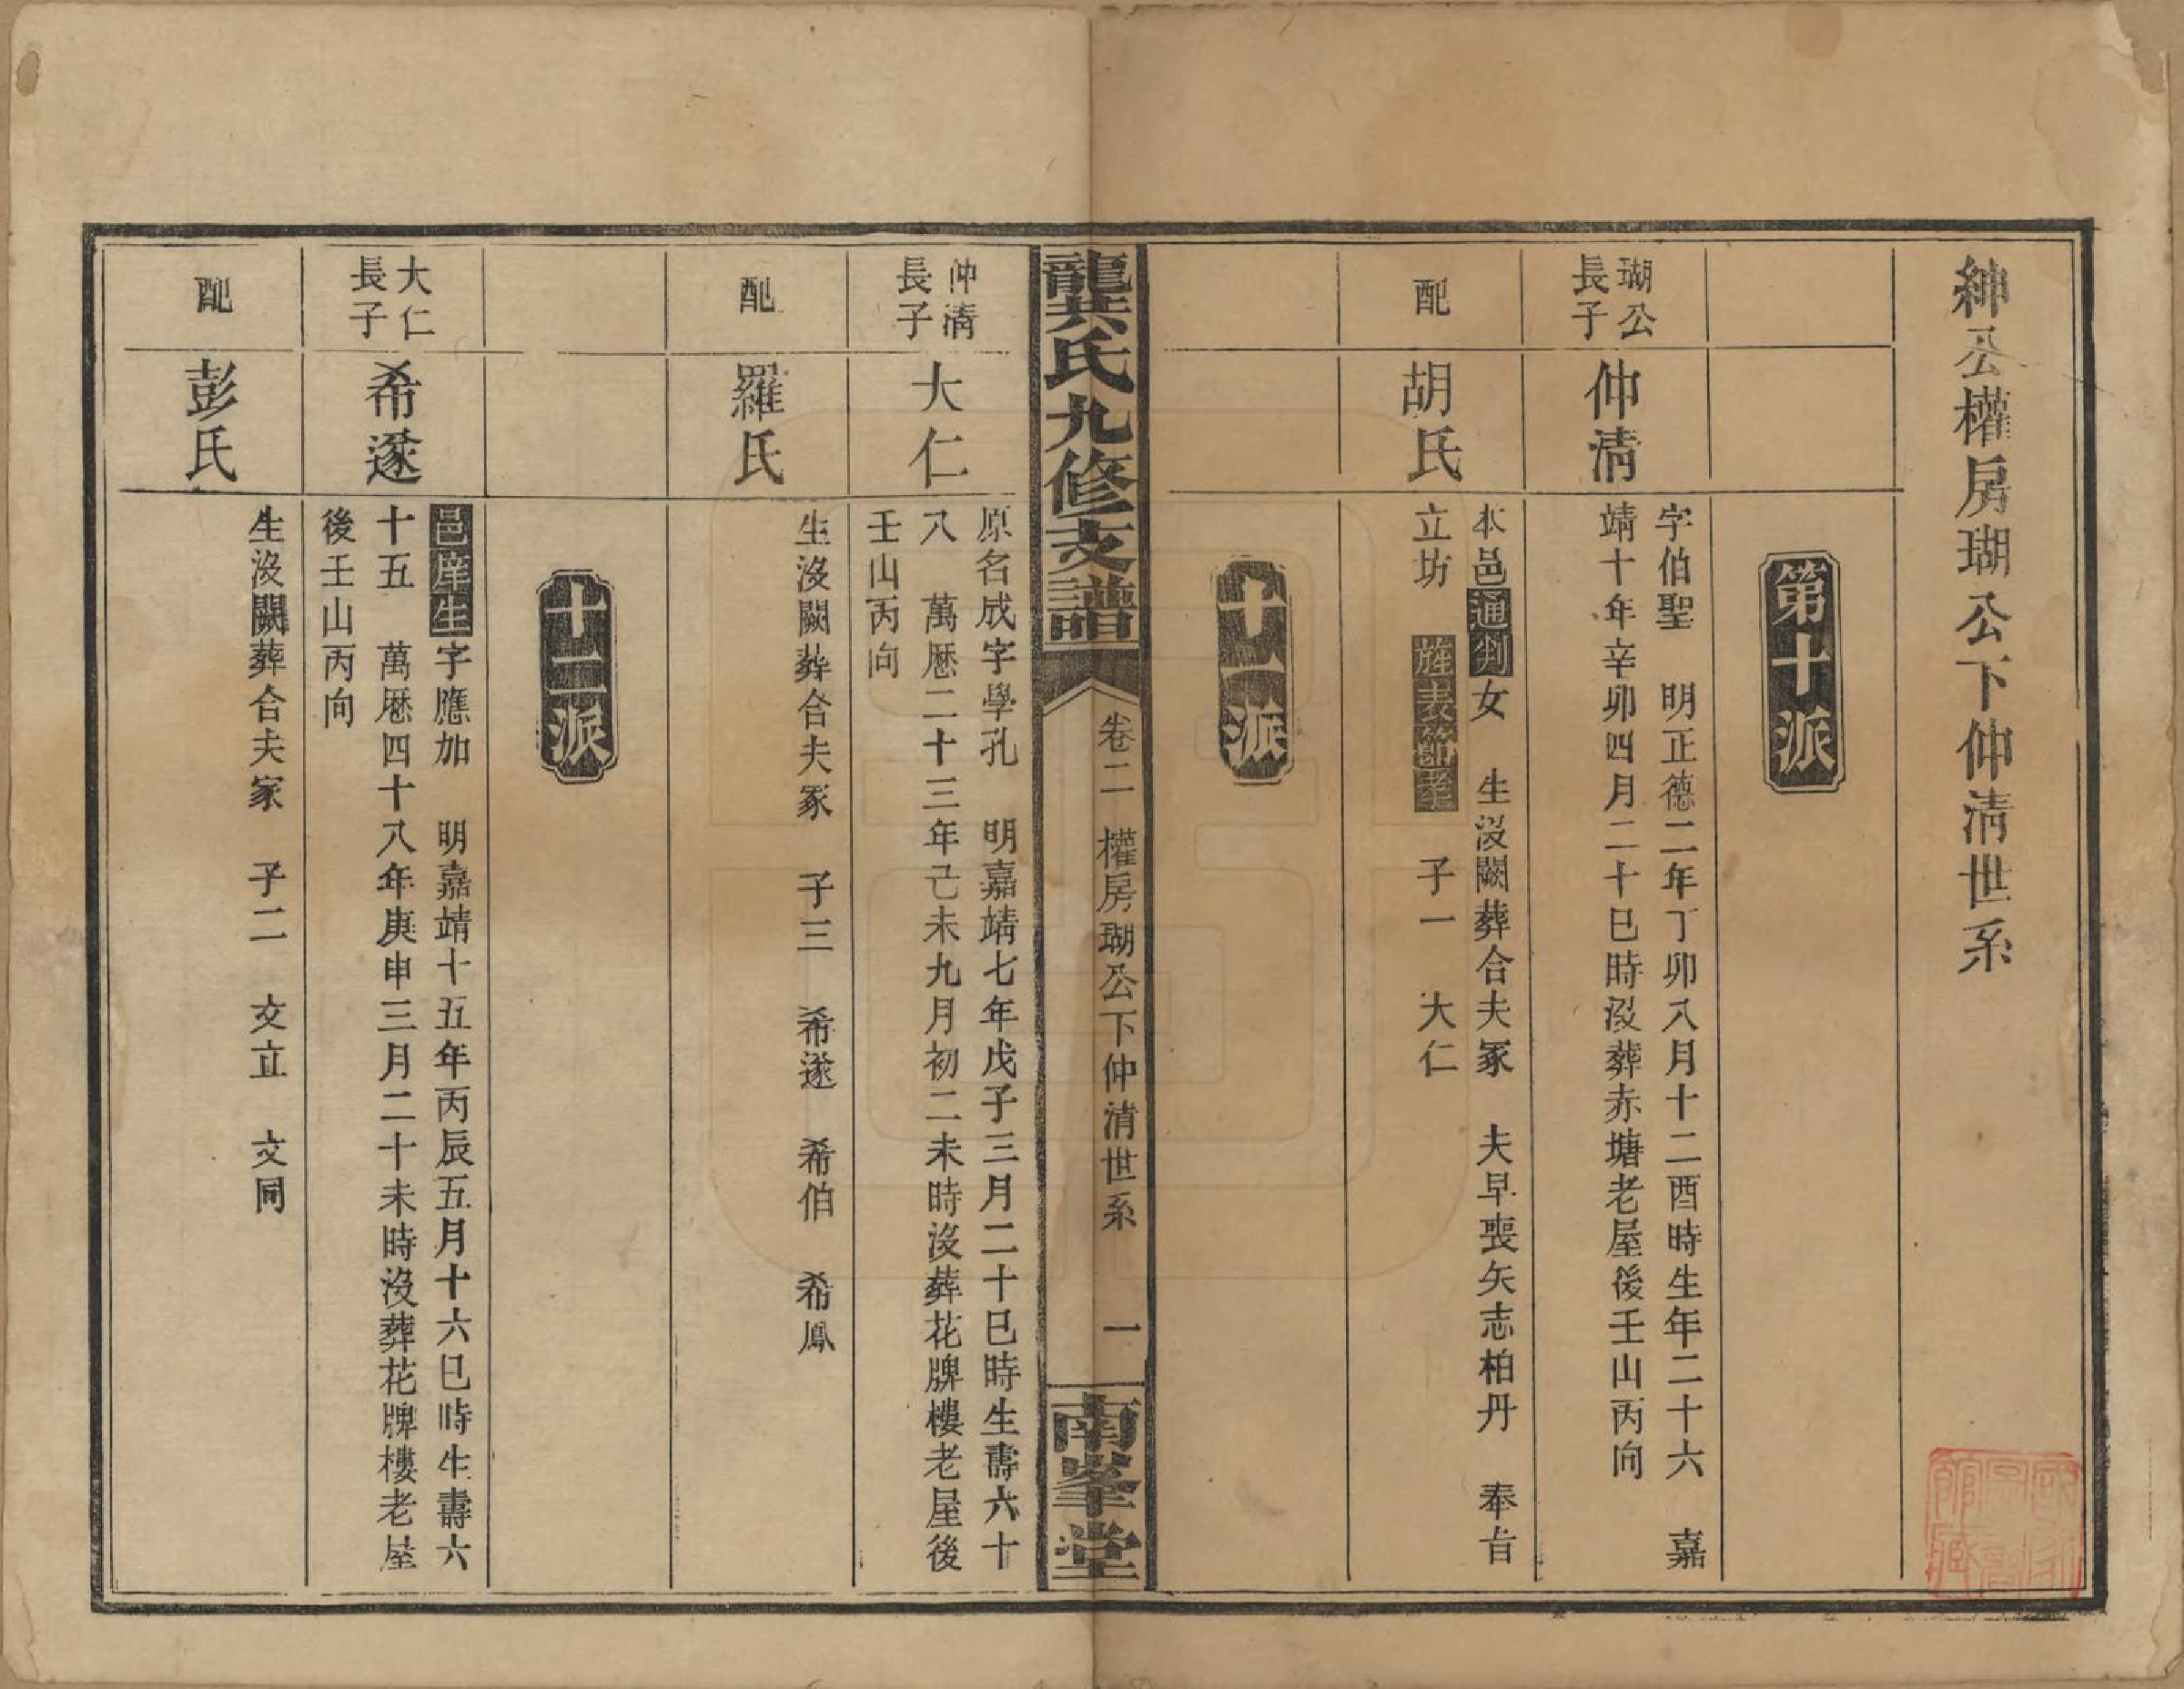 紳公權房瑚公下仲淸世系
第十派
瑚公
長子
仲淸
字伯聖　明正德二年丁卯八月十二酉時生年二十六　嘉
靖十年辛卯四月二十巳時沒葬赤塘老屋後壬山丙向
配
胡氏
本邑通判女　生沒闕葬合夫冢　夫早喪矢志柏丹　奉旨
立坊　旌表節孝　子一　大仁
十一派
龍龔氏九修支譜
卷二　權房瑚公下仲淸世系　一
南峯堂
仲淸
長子
大仁
原名成字學孔　明嘉靖七年戊子三月二十巳時生壽六十
八　萬厯二十三年乙未九月初二未時沒葬花牌樓老屋後
壬山丙向
配
羅氏
生沒闕葬合夫冢　子三　希遂　希伯　希鳳
十二派
大仁
長子
希遂
邑庠生字應加　明嘉靖十五年丙辰五月十六巳時生壽六
十五　萬厯四十八年庚申三月二十未時沒葬花牌樓老屋
後壬山丙向
配
彭氏
生沒闕葬合夫冢　子二　文立　文同